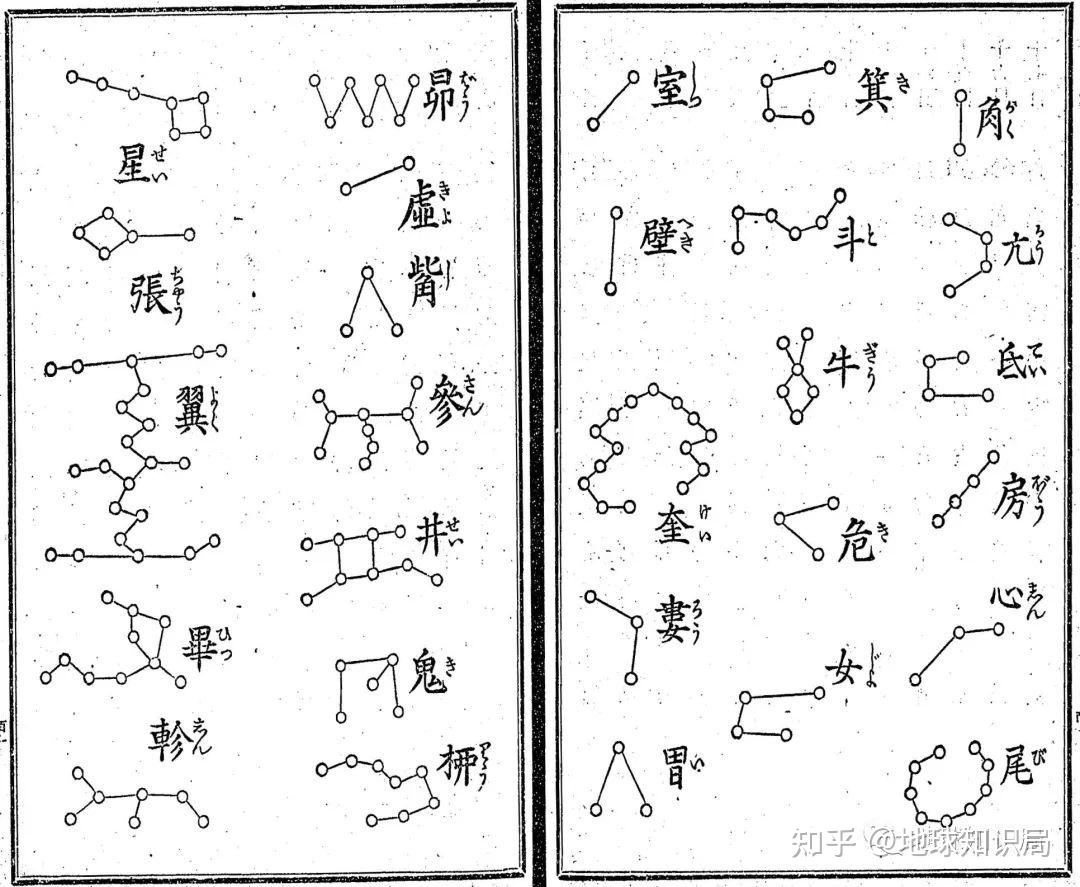 角 かく
亢 かう
氐 てい
房 ばう
心 しん
尾 び
箕 き
斗 と
牛 ぎう
危 き
女 じよ
室 しつ
壁 へき
奎 けい
婁 ろう
胃 い
昴 ばう
虛 きよ
觜 し
參 さん
井 せい
鬼 き
桺 りう
星 せい
張 ちやう
翼 よく
畢 ひつ
軫 しん
知乎 @地球知识局